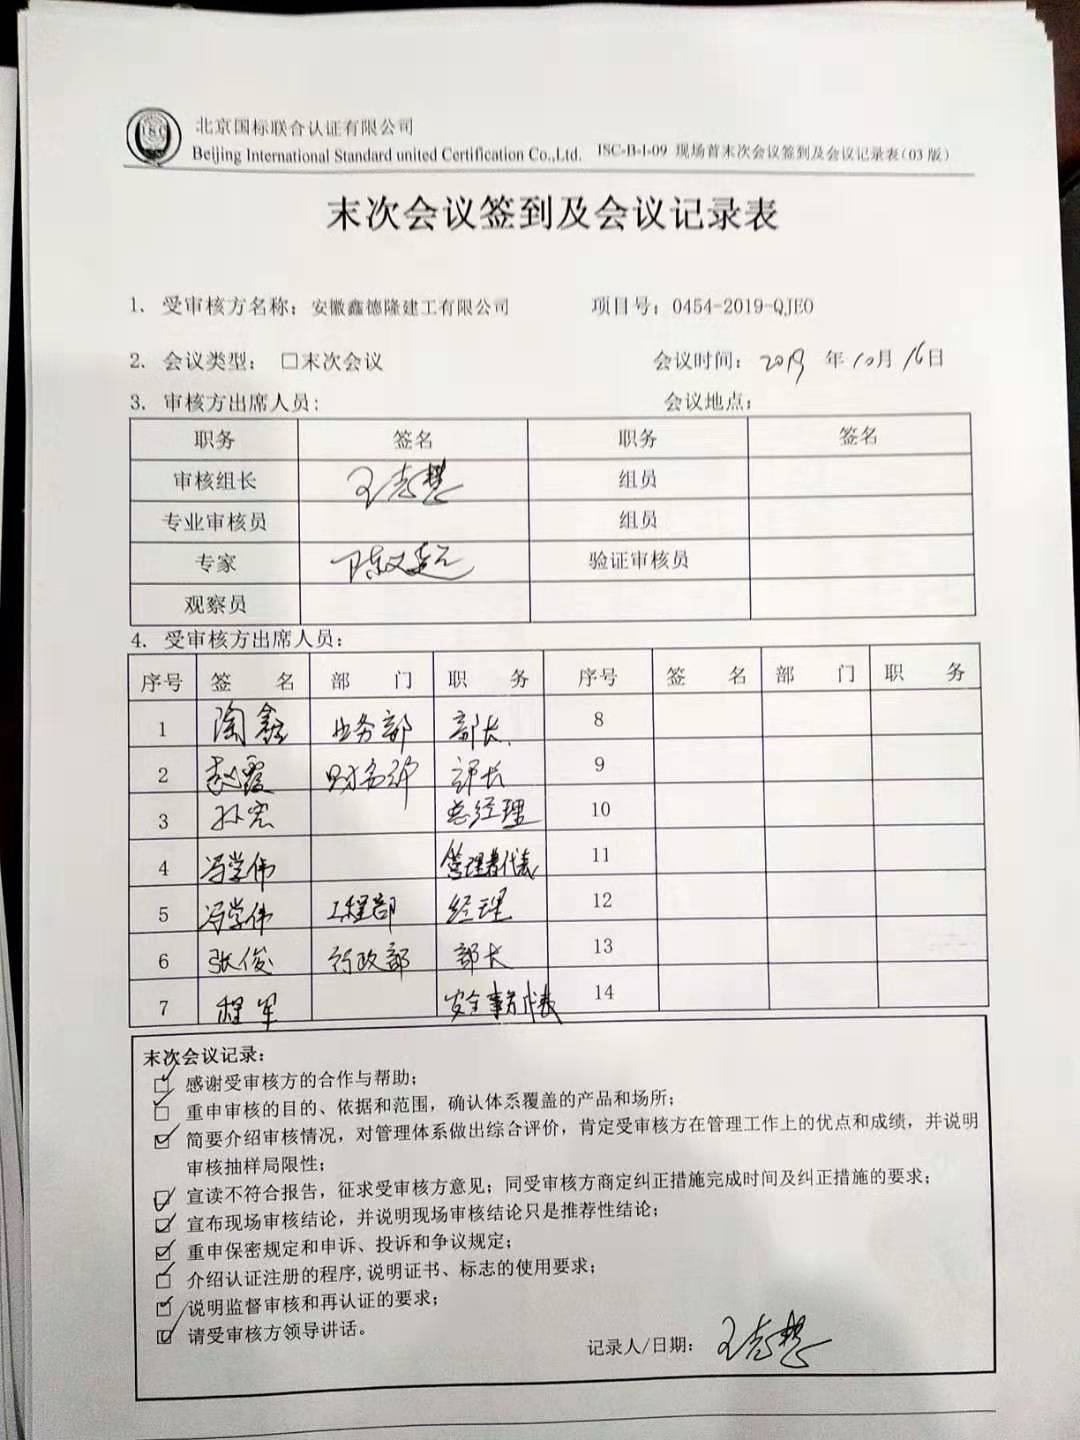 ISC
北京国标联合认证有限公司
Beijing International Standard united Certification Co.,Ltd.
ISC-B-I-09 现场首末次会议签到及会议记录表(03 版)
末次会议签到及会议记录表
1. 受审核方名称：安徽鑫德隆建工有限公司 项目号：0454-2019-QJEO
2. 会议类型： □末次会议 会议时间：2019 年10月16日
3. 审核方出席人员: 会议地点：
职务 签名 职务 签名
审核组长 组员
专业审核员 组员
专家 验证审核员
观察员
4. 受审核方出席人员:
序号 签 名 部 门 职 务 序号 签 名 部 门 职 务
1 陶鑫 业务部 部长 8
2 赵霞 财务部 部长 9
3 孙宏 总经理 10
4 冯学伟 管理者代表 11
5 冯学伟 工程部 经理 12
6 张俊 行政部 部长 13
7 程军 安全事务代表 14
末次会议记录:
☑ 感谢受审核方的合作与帮助;
☑ 重申审核的目的、依据和范围，确认体系覆盖的产品和场所;
☑ 简要介绍审核情况，对管理体系做出综合评价，肯定受审核方在管理工作上的优点和成绩，并说明
审核抽样局限性;
☑ 宣读不符合报告，征求受审核方意见；同受审核方商定纠正措施完成时间及纠正措施的要求;
☑ 宣布现场审核结论，并说明现场审核结论只是推荐性结论;
☑ 重申保密规定和申诉、投诉和争议规定;
☑ 介绍认证注册的程序,说明证书、标志的使用要求;
☑ 说明监督审核和再认证的要求;
☑ 请受审核方领导讲话。
记录人/日期: